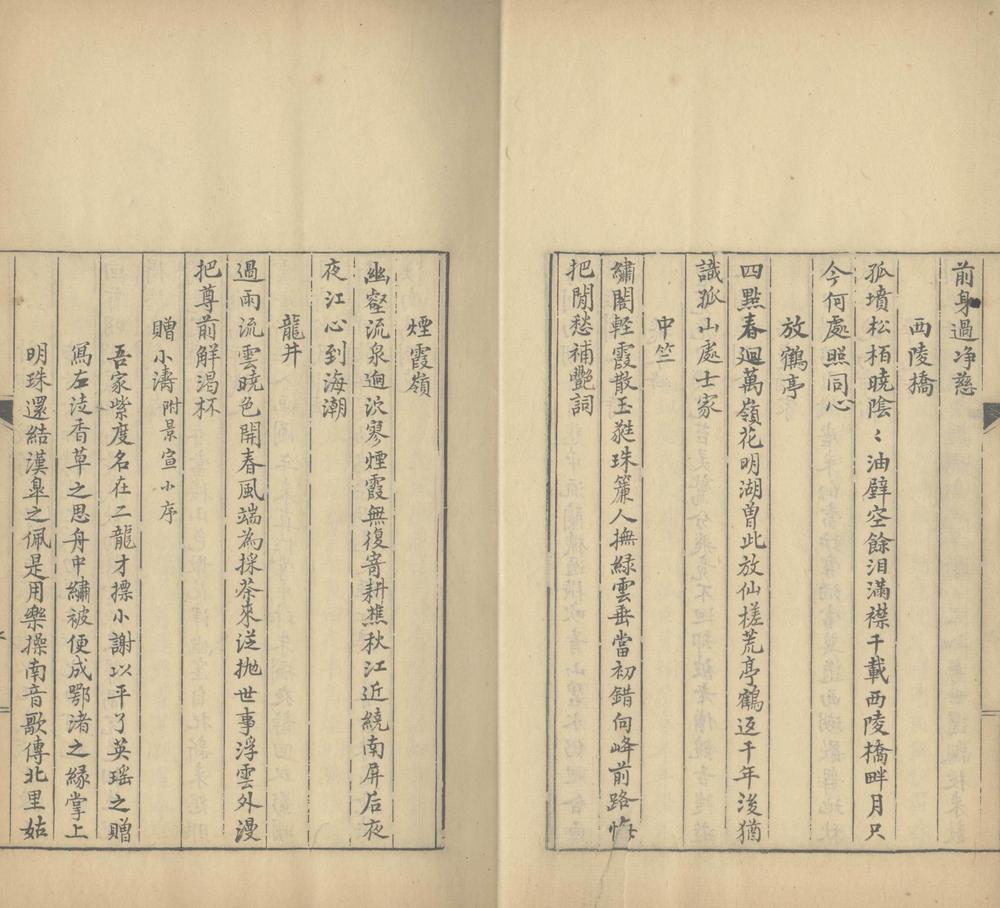 前身過净慈
西陵橋
孤墳松栢曉陰〻油壁空餘淚滿襟千載西陵橋畔月只
今何處照同心
放鶴亭
四點春廻萬嶺花明湖曽此放仙槎荒亭鶴返千年後猶
識孤山處士家
中竺
繡閣輕霞散玉蕤珠簾人撫綠雲垂當初錯向峰前路悔
把閒愁補艷詞
煙霞嶺
幽壑流泉迥泬寥煙霞無復寄耕樵秋江近繞南屏后夜
夜江心到海潮
龍井
過雨流雲曉色開春風端為採茶來從抛世事浮雲外漫
把尊前解渴杯
贈小濤附景宣小序
吾家紫度名在二龍才摽小謝以平了英瑤之贈
寫左徒香草之思舟中繡被便成鄂渚之緣掌上
明珠還結漢臯之佩是用樂操南音歌傳北里姑